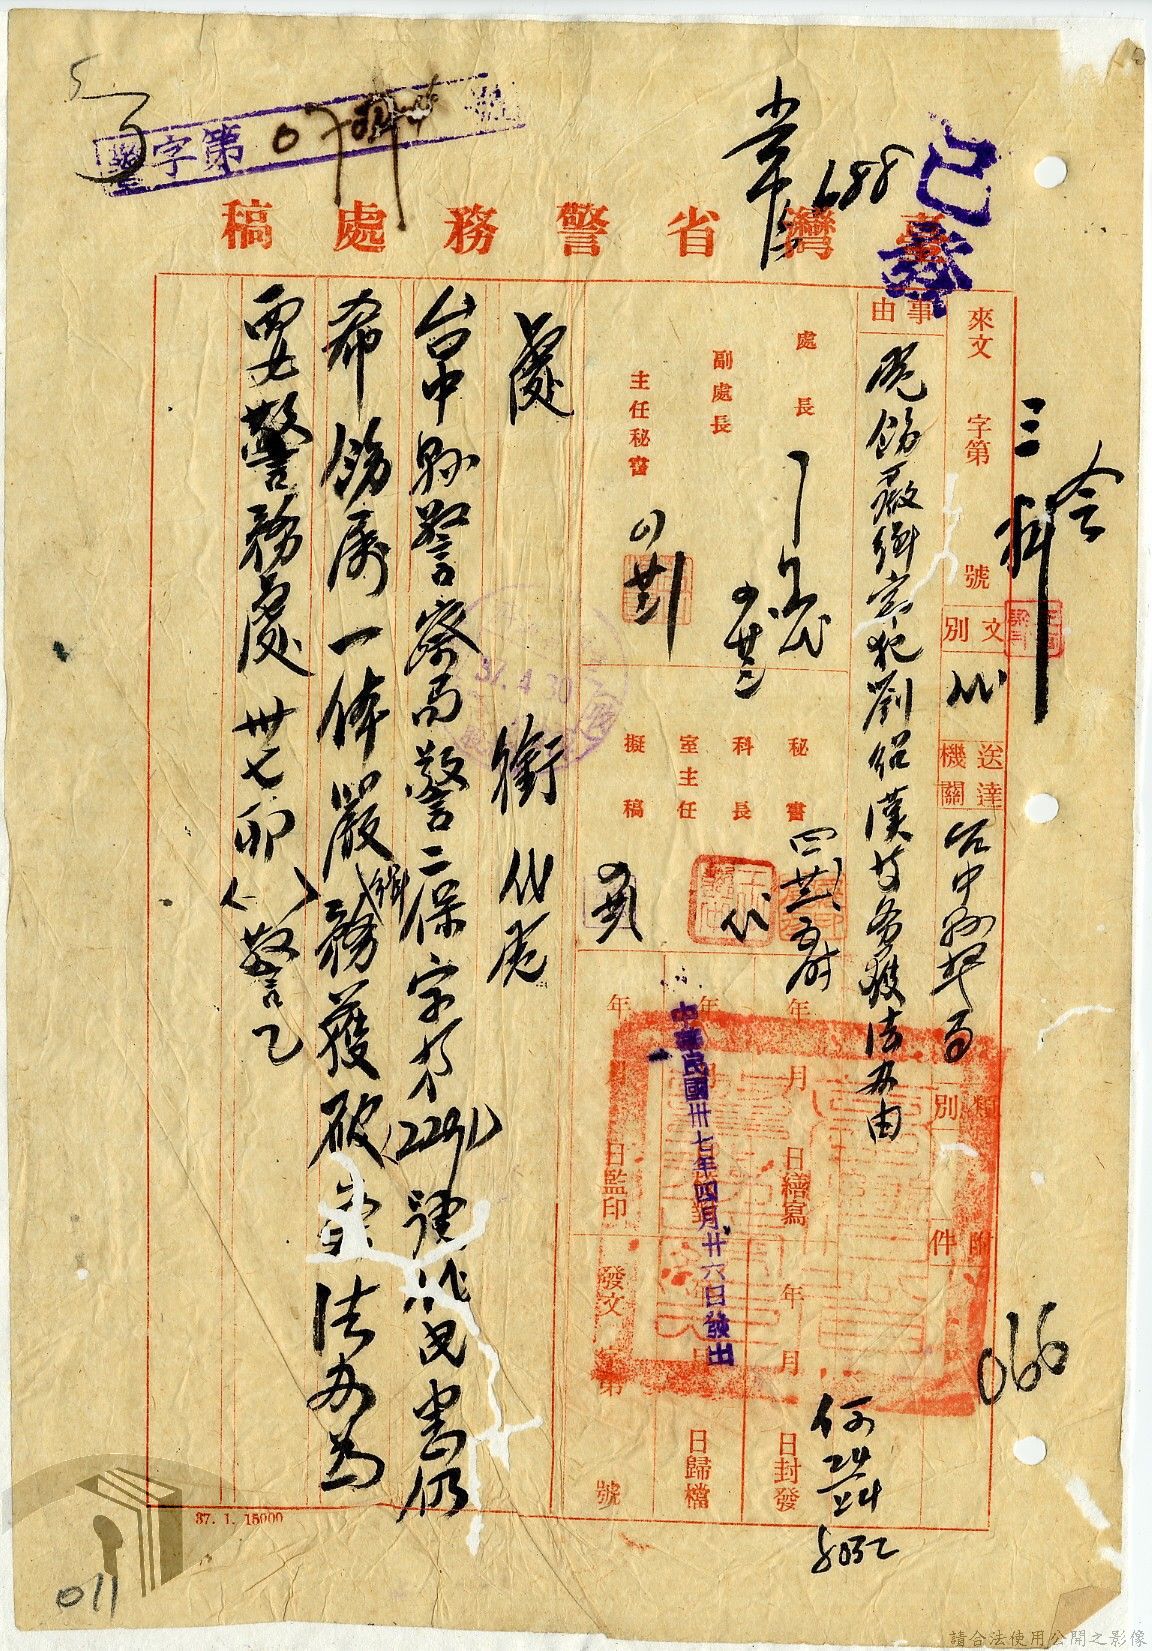 臺灣省警務處稿
已發
警字第
688
來文 字第 號
三科
文別 代
送達機關 台中縣警局
類別
附件
事由
電飭嚴緝宗犯劉紹漢等務獲法辦由
處長
副處長
主任秘書
秘書
科長
室主任
擬稿
年 月 日繕寫
年 月 日封發
日歸檔
年 月 日監印
發文 字第 號
中華民國卅七年四月廿六日發出
37.4.30
處 銜代電
台中縣警察局警二保字第(2291)號代電悉仍
希飭屬一体嚴緝務獲破案法辦為
要警務處卅七卯( )警乙
37. 1. 15000
066
011
請合法使用公開之影像